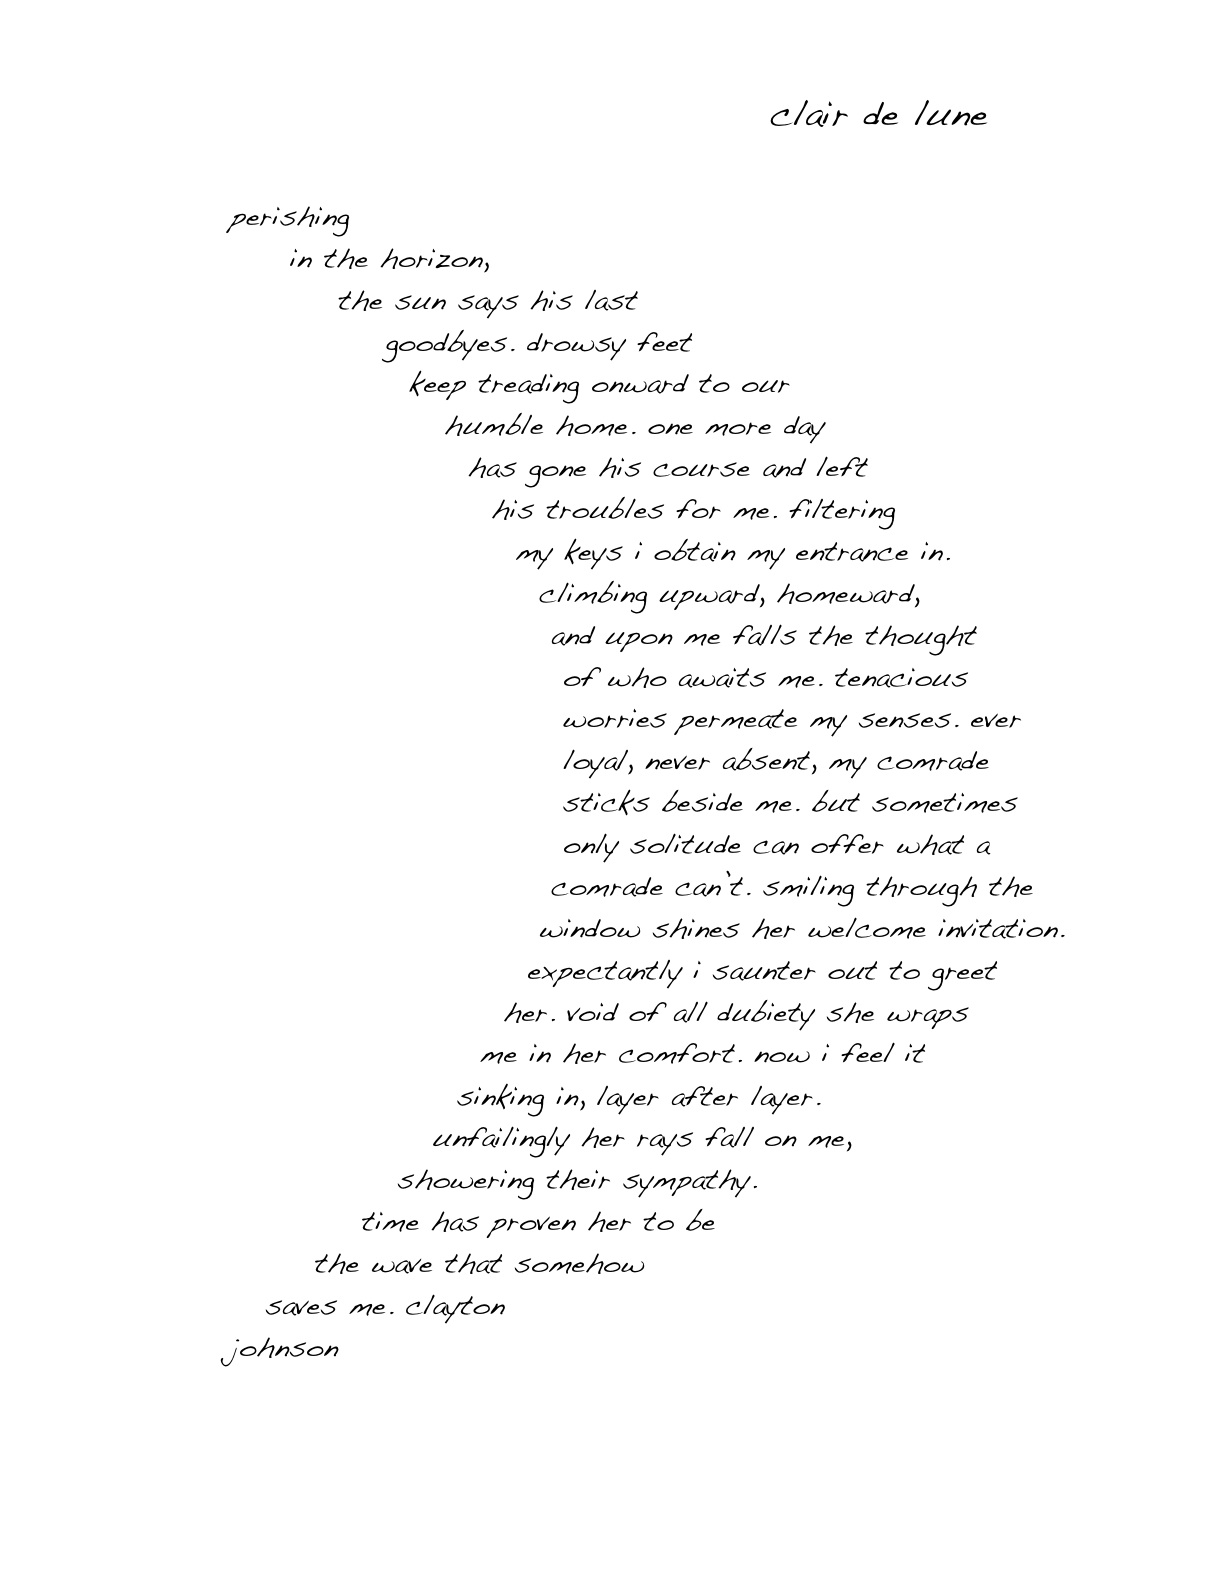 clair de lune
perishing
in the horizon,
the sun says his last
goodbyes. drowsy feet
keep treading onward to our
humble home. one more day
has gone his course and left
his troubles for me. filtering
my keys i obtain my entrance in.
climbing upward, homeward,
and upon me falls the thought
of who awaits me. tenacious
worries permeate my senses. ever
loyal, never absent, my comrade
sticks beside me. but sometimes
only solitude can offer what a
comrade can't. smiling through the
window shines her welcome invitation.
expectantly i saunter out to greet
her. void of all dubiety she wraps
me in her comfort. now i feel it
sinking in, layer after layer.
unfailingly her rays fall on me,
showering their sympathy.
time has proven her to be
the wave that somehow
saves me. clayton
johnson